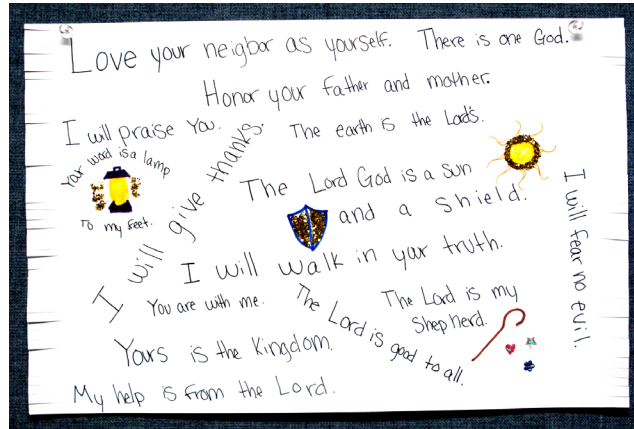 Love your neigbor as yourself. There is one God.
Honor your father and mother.
I will praise You.
The earth is the Lord's.
Your word is a lamp
To my feet.
I will give thanks.
The Lord God is a sun
and a shield.
I will fear no evil.
I will walk in your truth.
You are with me.
The Lord is good to all.
The Lord is my
Shepherd.
Yours is the Kingdom.
My help is from the Lord.